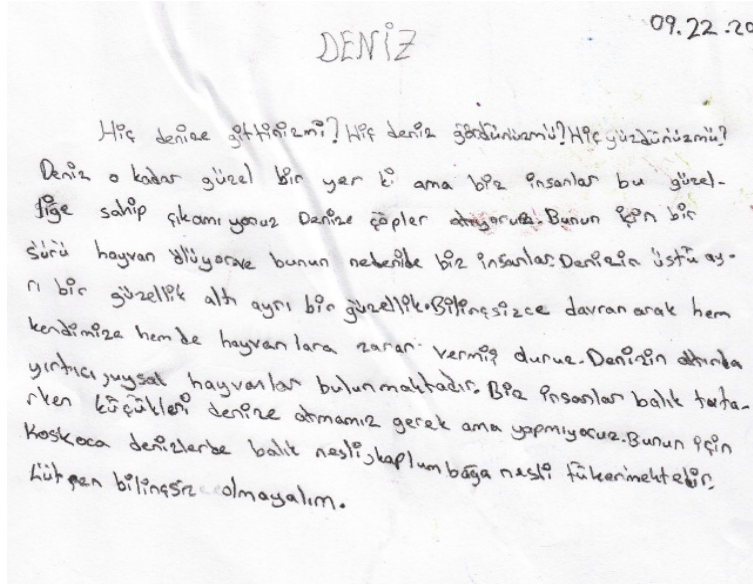 09.22.20
DENİZ
Hiç denize gittinizmi? Hiç deniz gördünüzmü? Hiç yüzdünüzmü?
Deniz o kadar güzel bir yer ki ama biz insanlar bu güzel-
liğe sahip çıkamıyoruz Denize çöpler atıyoruz. Bunun için bir
sürü hayvan ölüyorve bunun nedenide biz insanlar. Denizin üstü ay-
rı bir güzellik altı ayrı bir güzellik. Bilinçsizce davranarak hem
kendimize hemde hayvanlara zarar vermiş duruz. Denizin altında
yırtıcı, uysal hayvanlar bulunmaktadır. Biz insanlar balık tuta-
rken küçükleri denize atmamız gerek ama yapmıyoruz. Bunun için
Koskoca denizlerde balık nesli, kaplumbağa nesli tükenmektedir.
Lütfen bilinçsiz olmayalım.